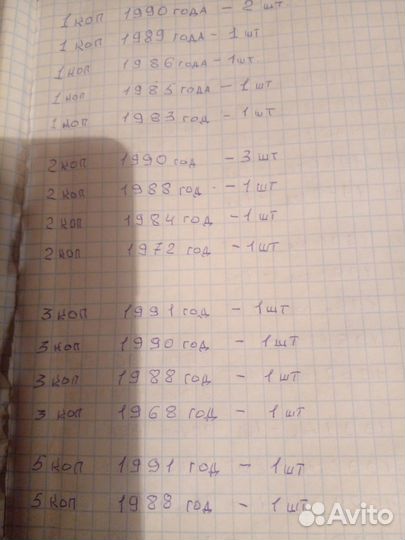 1 коп 1990 года - 2 шт
1 коп 1989 года - 1 шт
1 коп 1986 года - 1 шт
1 коп 1985 года - 1 шт
1 коп 1983 год - 1 шт
2 коп 1990 год - 3 шт
2 коп 1988 год - 1 шт
2 коп 1984 год - 1 шт
2 коп 1972 год - 1 шт
3 коп 1991 год - 1 шт
3 коп 1990 год - 1 шт
3 коп 1988 год - 1 шт
3 коп 1968 год - 1 шт
5 коп 1991 год - 1 шт
5 коп 1988 год - 1 шт
Avito